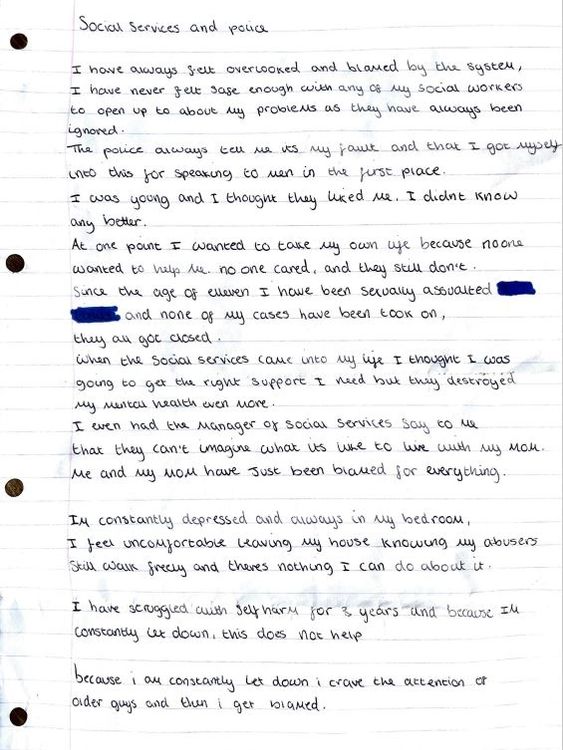 Social Services and police
I have always felt overlooked and blamed by the system,
I have never felt safe enough with any of my social workers
to open up to about my problems as they have always been
ignored.
The police always tell me its my fault and that I got myself
into this for speaking to men in the first place.
I was young and I thought they liked me. I didnt know
any better.
At one point I wanted to take my own life because noone
wanted to help me. no one cared, and they still don't.
Since the age of elleven I have been sexually assualted
and none of my cases have been took on,
they all got closed.
When the social services came into my life I thought I was
going to get the right support I need but they destroyed
my mental health even more.
I even had the manager of social services say to me
that they can't imagine what its like to live with my mom.
Me and my mom have just been blamed for everything.
Im constantly depressed and always in my bedroom,
I feel uncomfortable leaving my house knowing my abusers
still walk freely and theres nothing I can do about it.
I have scruggled with self harm for 3 years and because Im
constantly let down, this does not help
because i am constantly let down i crave the attention of
older guys and then i get blamed.